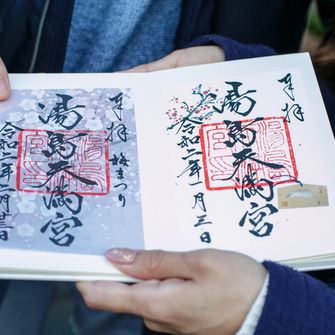 奉拝
湯島天満宮
令和二年一月三日
奉拝
梅まつり
湯島天満宮
令和二年二月